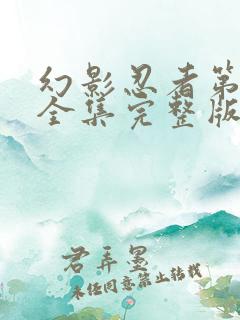 幻影忍者第
全集完整版
君弄墨
未经同意禁止转载